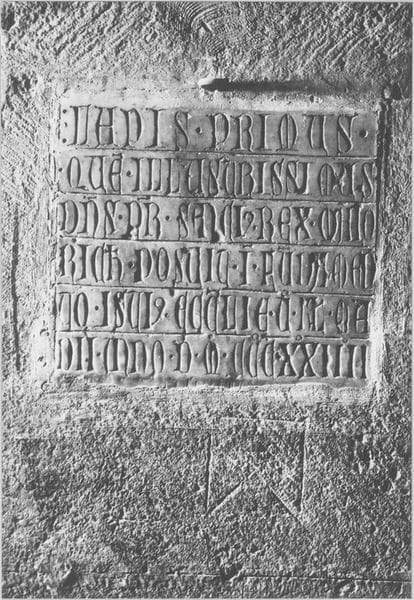 :LAPIS·PRIMUS·
·QUĒ ILLUSTRISSIMUS
DÑS·ÑR·SANCIꝰ·REX·MAIO
RICH̄·POSUIT·I·FUNDAMEN
TO·ISTIꝰ·ECCLIE·V·KL·MA
DII·ANNO·D·M·CCC·XXIIII